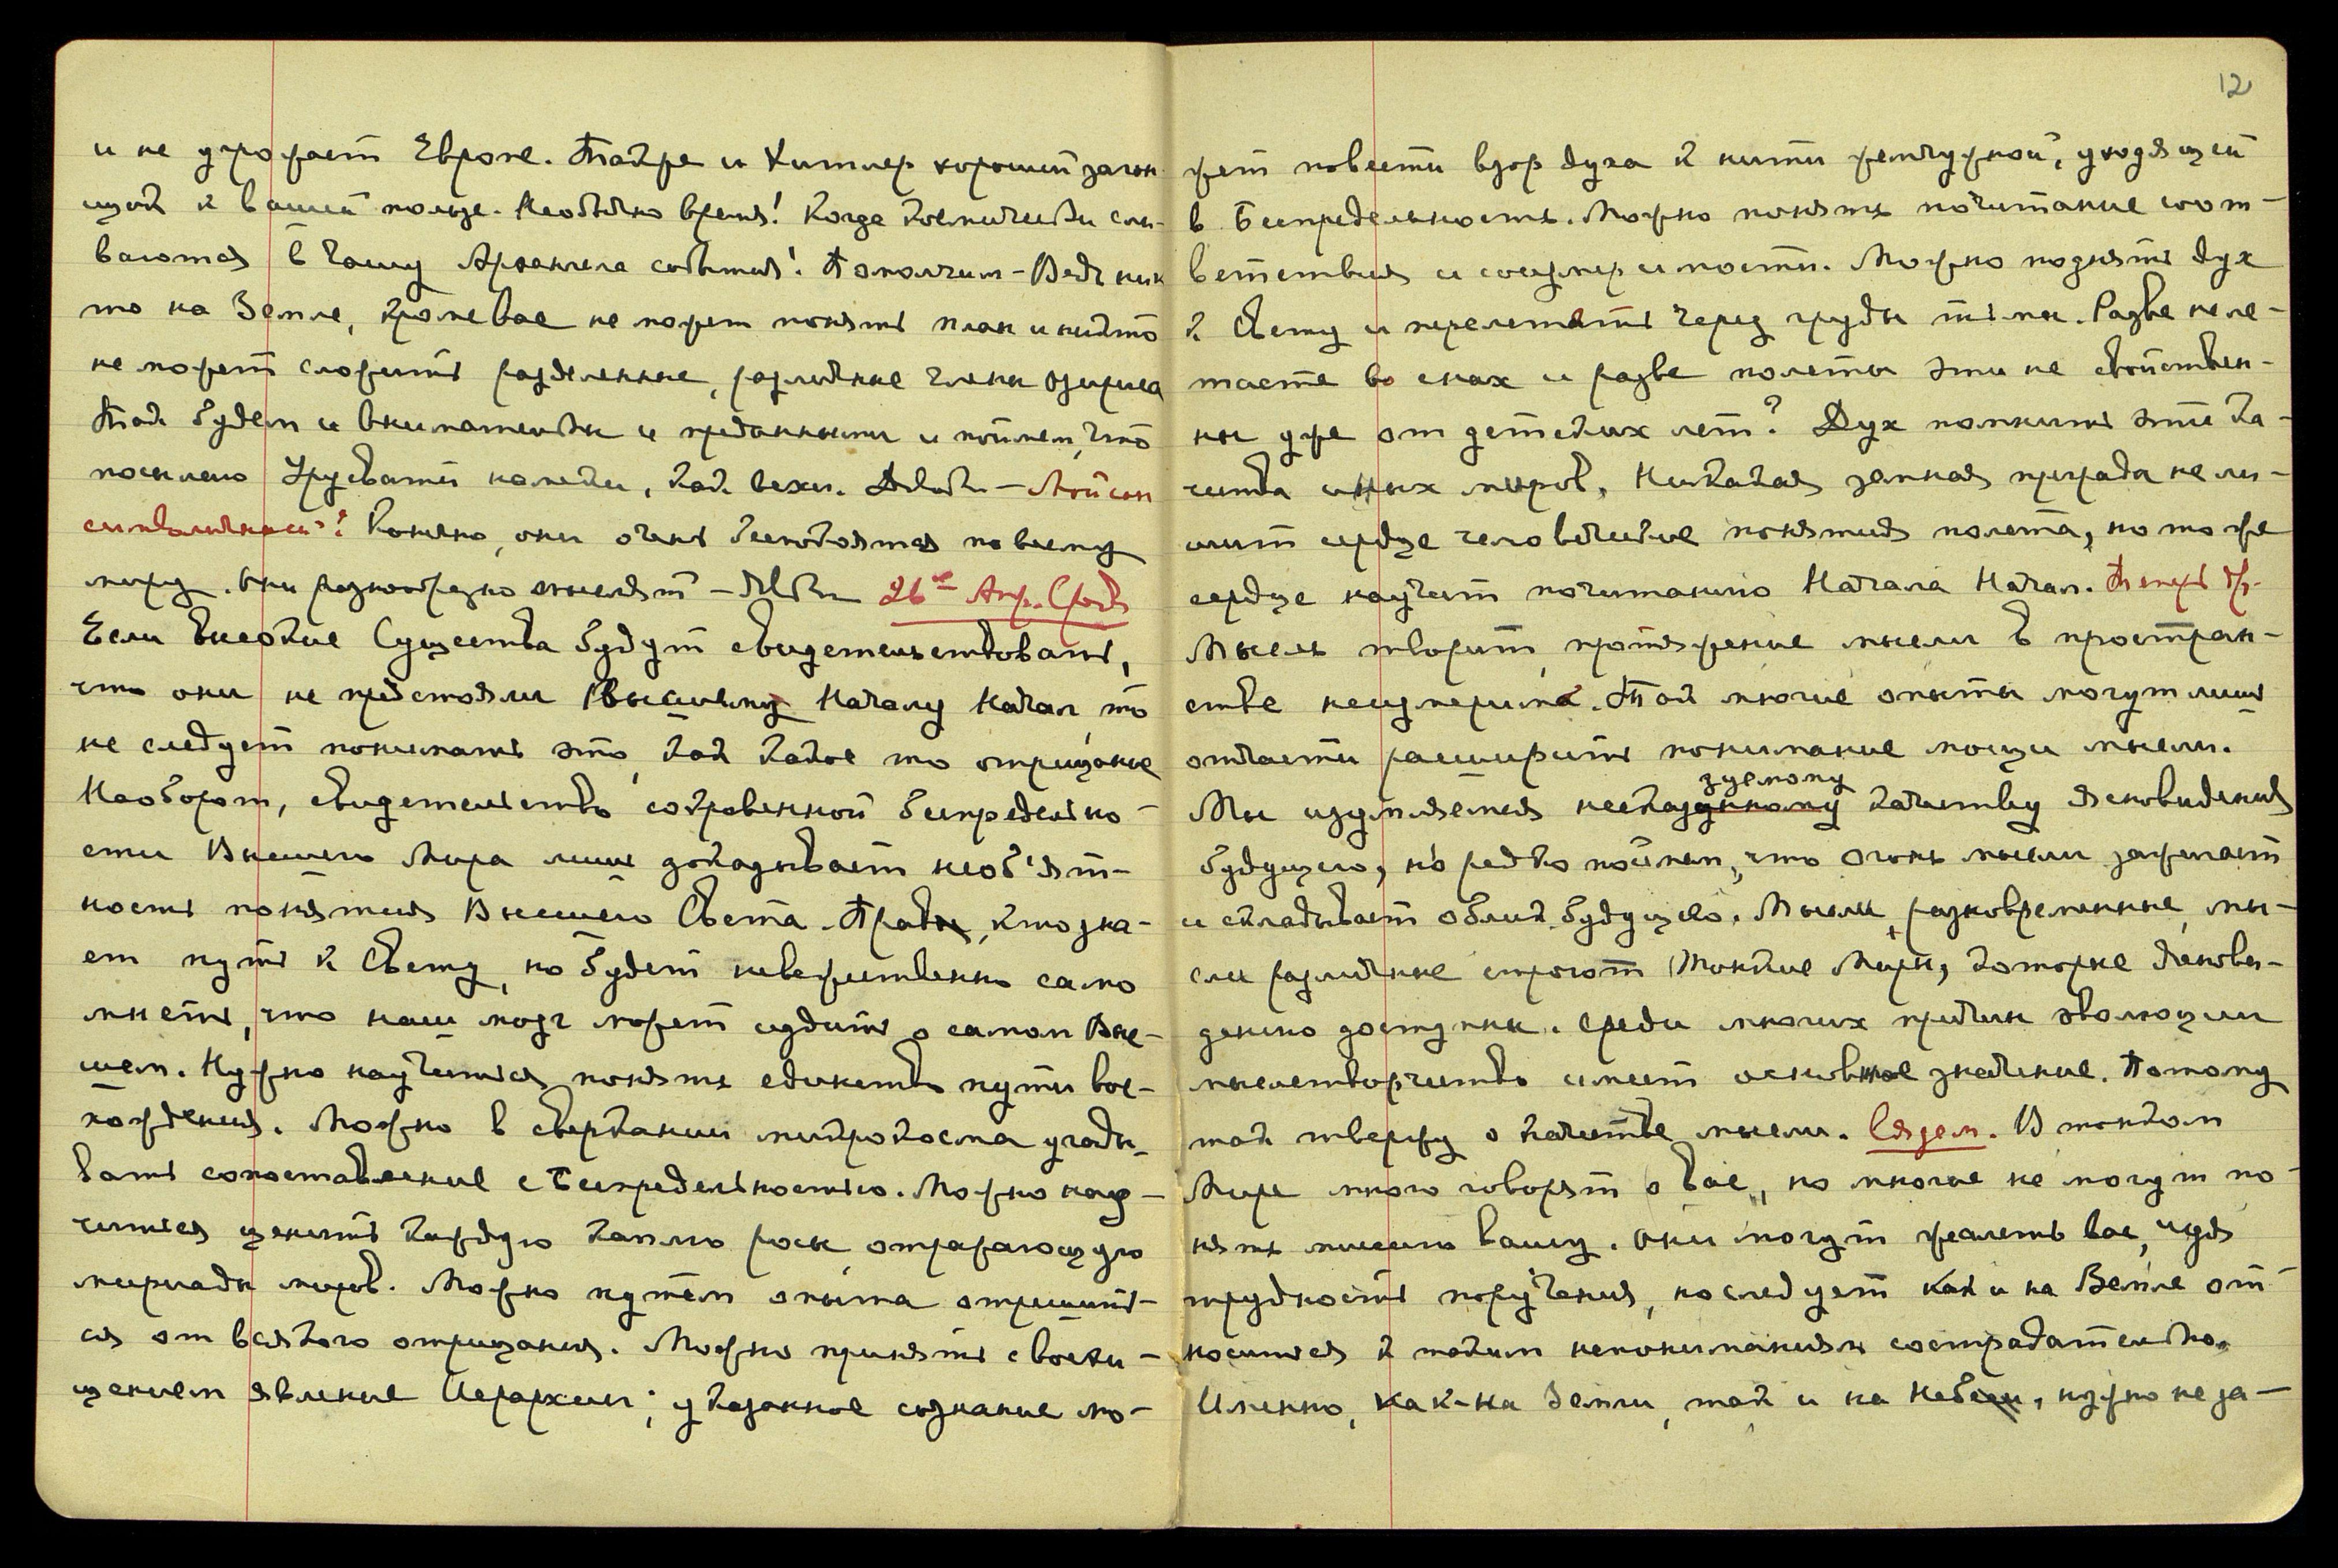 и не угрожает Европе. Также и Хитлер хороший загон
щик к вашей пользе. Необычно время! Когда космически сли-
ваются в Чашу Архангела события! Помолчим – Ведь ник
то на Земле, кроме вас не может понять план и никто
не может сложить разделенные, различные члены Озириса
Так будем и внимательны и преданными и поймем, что
посылаю Урусвати пометки, как вехи. – Мой сон
символичный? Конечно, они очень беспокоятся по всему
миру. Они разнообразно мыслят – 26ое Апр. Среда
Если высокие Существа будут свидетельствовать,
что они не предстояли Высшему Началу Начал, то
не следует понимать это, как какое то отрицание
Наоборот, свидетельство сокровенной беспредельно-
сти Высшего Мира лишь доказывает необ'ят-
ность понятия Высшего Света. Правы, кто зна-
ет путь к Свету, но будет невежественно само
мнение, что наш мозг может судить о самом Выс-
шем. Нужно научиться понять единство пути вос-
хождения. Можно в сверкании микрокосма угады-
вать сопоставление с Беспредельностью. Можно нау-
читься ценить каждую каплю росы, отражающую
мириады миров. Можно путем опыта отрешить-
ся от всякого отрицания. Можно принять с восхи-
щением явление Иерархии; указанное сознание мо-
12
жет повести взор духа к нити жемчужной, уходящей
в Беспредельность. Можно понять почитание соот-
ветствия и соизмеримости. Можно поднять дух
к Свету и перелетать через груды тьмы. Разве не ле-
таете во снах и разве полеты эти не свойствен-
ны уже от детских лет? Дух помнит эти ка-
чества иных миров, Никакая земная преграда не ли-
шит сердце человеческое понятия полета, но то же
сердце научит почитанию Начала Начал. Теперь др.
Мысль творит, протяжение мысли в простран-
стве неизмеримо. Так многие опыты могут лишь
отчасти расширить понимание мощи мысли.
зуемому
Мы изумляемся нескаазанному качеству ясновидения
будущего, но редко поймем, что огонь мысли зажигает
и складывает облик будущего. Мысли разновременные, мы-
сли различные строют Тонкие Миры, которые яснови-
дению доступны. Среди многих причин эволюции
мыслетворчество имеет основное значение. Потому
так твержу о качестве мысли. Сядем. В тонком
Мире много говорят о вас, но многие не могут по-
нять миссию вашу. Они могут жалеть вас, идя
трудность поручения, но следует как и на Земле от-
носиться к таким непониманиям сострадательно.
Именно, как на Земли, так и на Небеси, нужно не за-